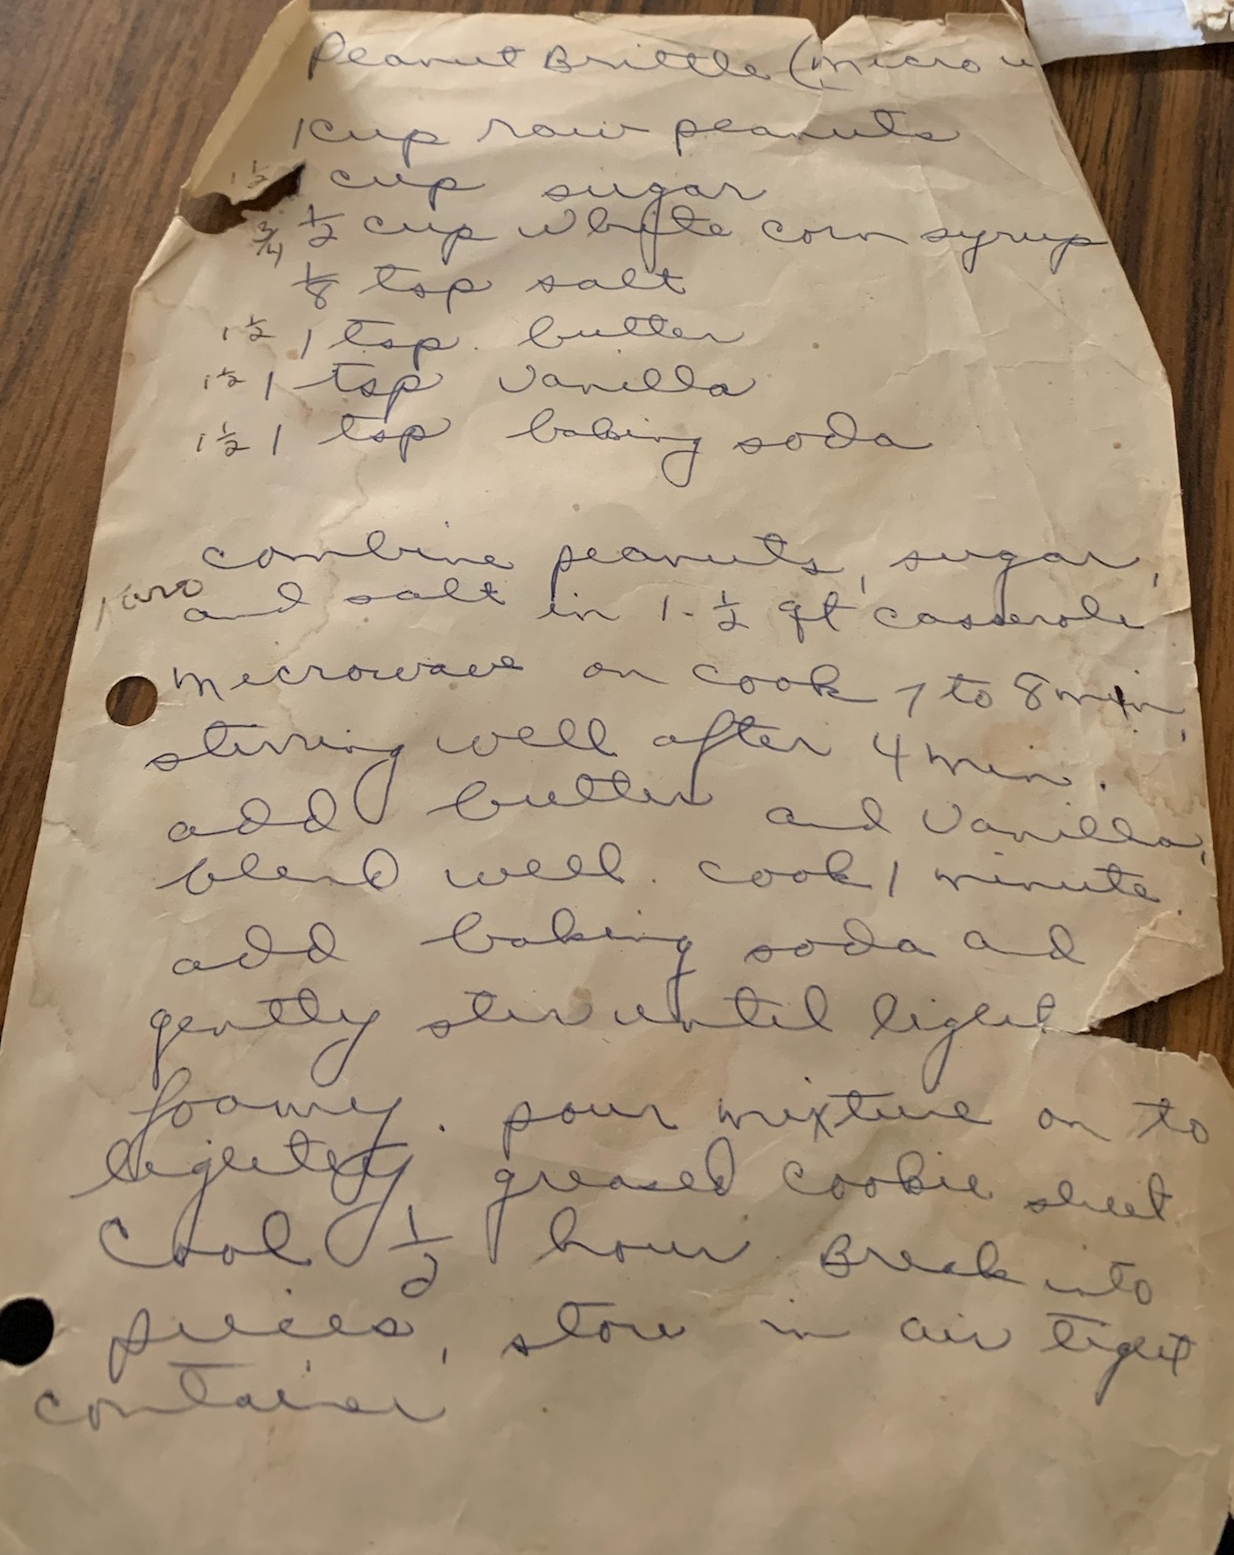 Peanut Brittle (micro w
1 cup raw peanuts
1 1/2 cup sugar
3/4 1/2 cup white corn syrup
1/8 tsp salt
1 1/2 1 tsp. butter
1 1/2 1 tsp vanilla
1 1/2 1 tsp baking soda
combine peanuts, sugar,
karo
and salt in 1-1/2 qt casserole
microwave on cook 7 to 8 min,
stirring well after 4 min.
add butter and vanilla,
blend well. cook 1 minute.
add baking soda ad
gently stir until light
foamy. pour mixture on to
lightly greased cookie sheet
Cool 1/2 hour. Break into
pieces, store in air tight
container